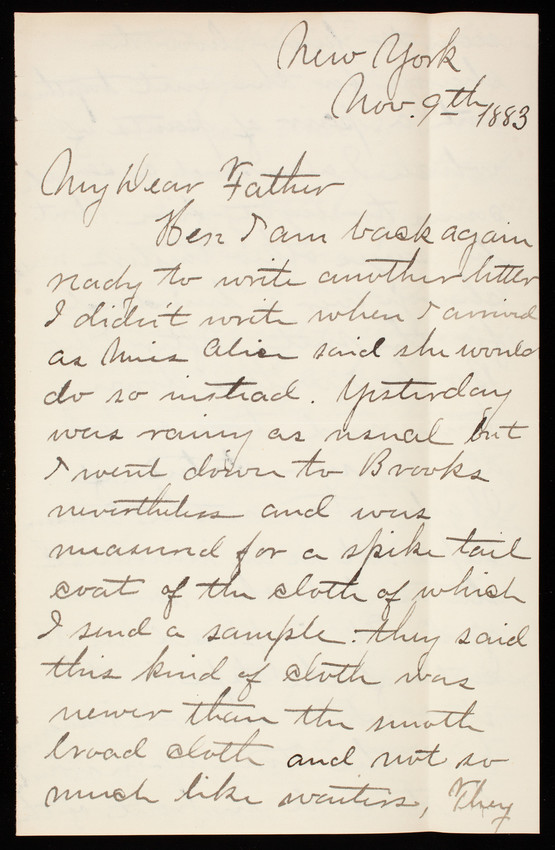 New York
Nov. 9th 1883
My Dear Father
Here I am back again
ready to write another letter
I didn't write when I arrived
as Miss Alice said she would
do so instead. Yesterday
was rainy as usual but
I went down to Brooks
nevertheless and was
measured for a spike tail
coat of the cloth of which
I send a sample. they said
this kind of cloth was
newer than the smoth
broad cloth and not so
much like waiters, They